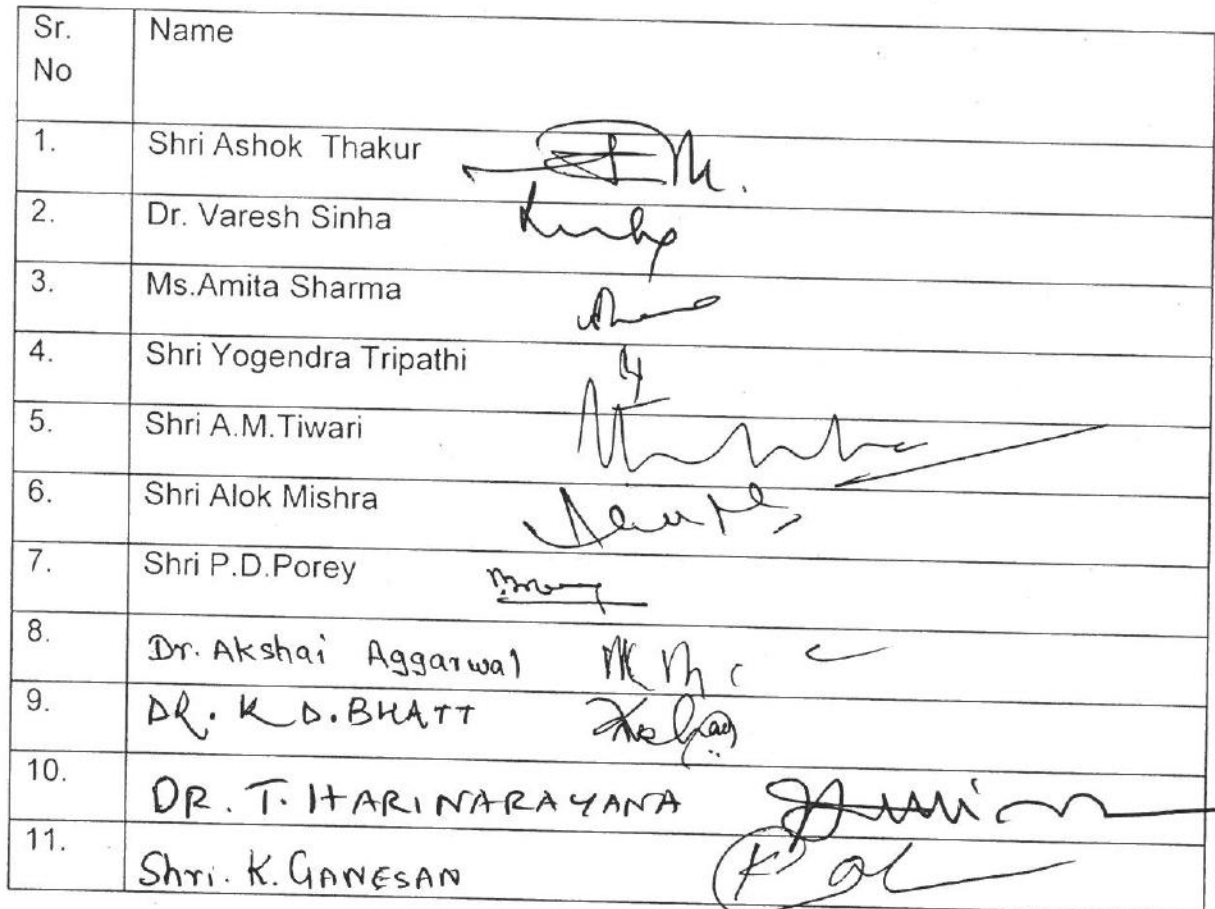 Sr.
No
Name
1. Shri Ashok Thakur
2. Dr. Varesh Sinha
3. Ms.Amita Sharma
4. Shri Yogendra Tripathi
5. Shri A.M.Tiwari
6. Shri Alok Mishra
7. Shri P.D.Porey
8. Dr. Akshai Aggarwal
9. DR. K D. BHATT
10. DR. T. HARINARAYANA
11. Shri. K. GANESAN